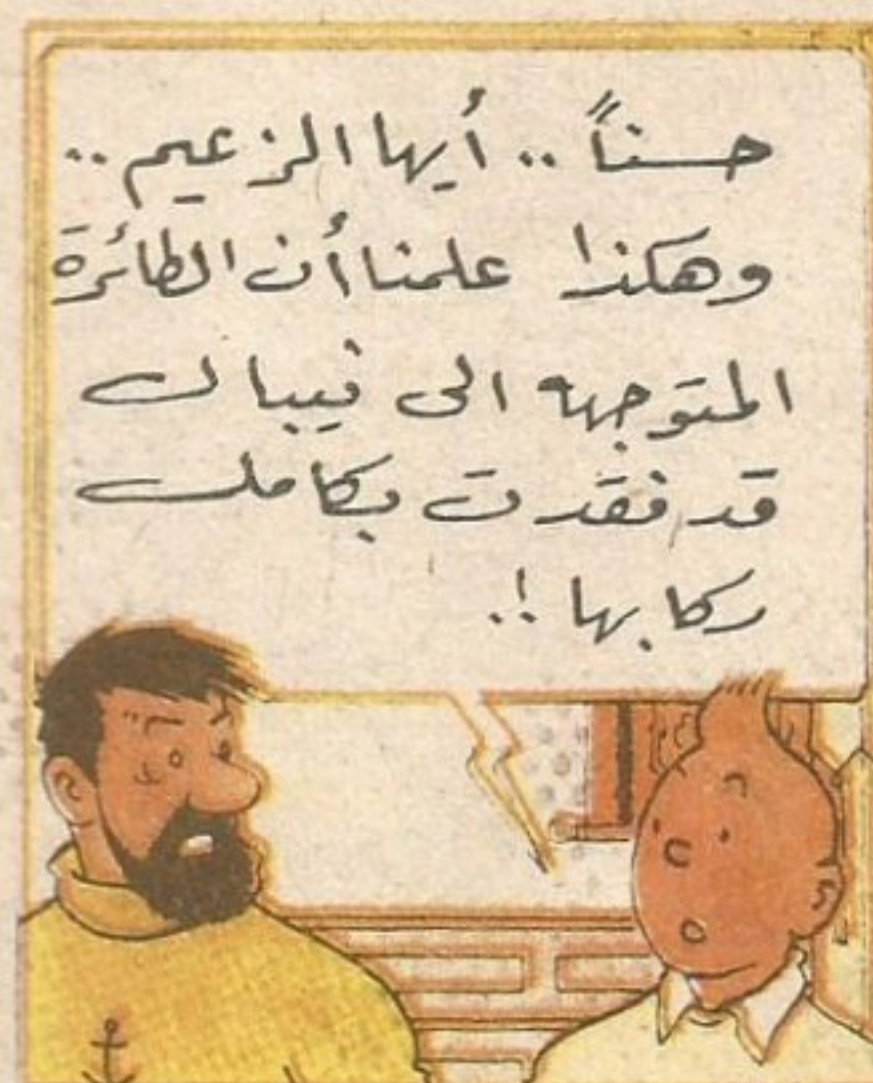 حسناً .. أيها الزعيم ..
وهكذا علمنا أن الطائرة
المتوجهه الى نيبال
قد فقدت بكامل
ركابها !..